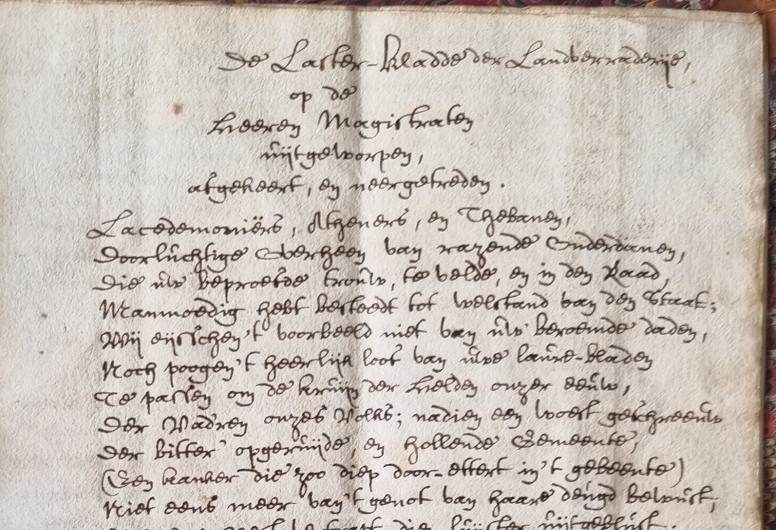 De Laster-kladde der Landverraderije,
op de
Heeren Magistraten
uijtgeworpen,
afgekeert, en neergetreden.
Lacedemoniërs, Atheners, en Thebanen,
Doorlúchtige Overheen van razende Onderdanen,
Die úw beproefde troúw, te velde, en in den Raad,
Manmoedig hebt besteedt tot welstand van den Staat;
Wij eijsschen 't voorbeeld niet van úw beroemde daden,
Noch poogen 't heerlijk loof van úwe laúre-bladen
Te passen om de krúijn der Helden onzer eeúw,
Der Vadren onzes Volks; nadien een woest geschreeúw
Der bitter opgerúijde, en hollende Gemeente,
(Een kanker die zoo diep door-ettert in 't gebeente)
Niet eens meer van 't genot van haare deúgd bewúst,
die lúijster úijtgeblúst: